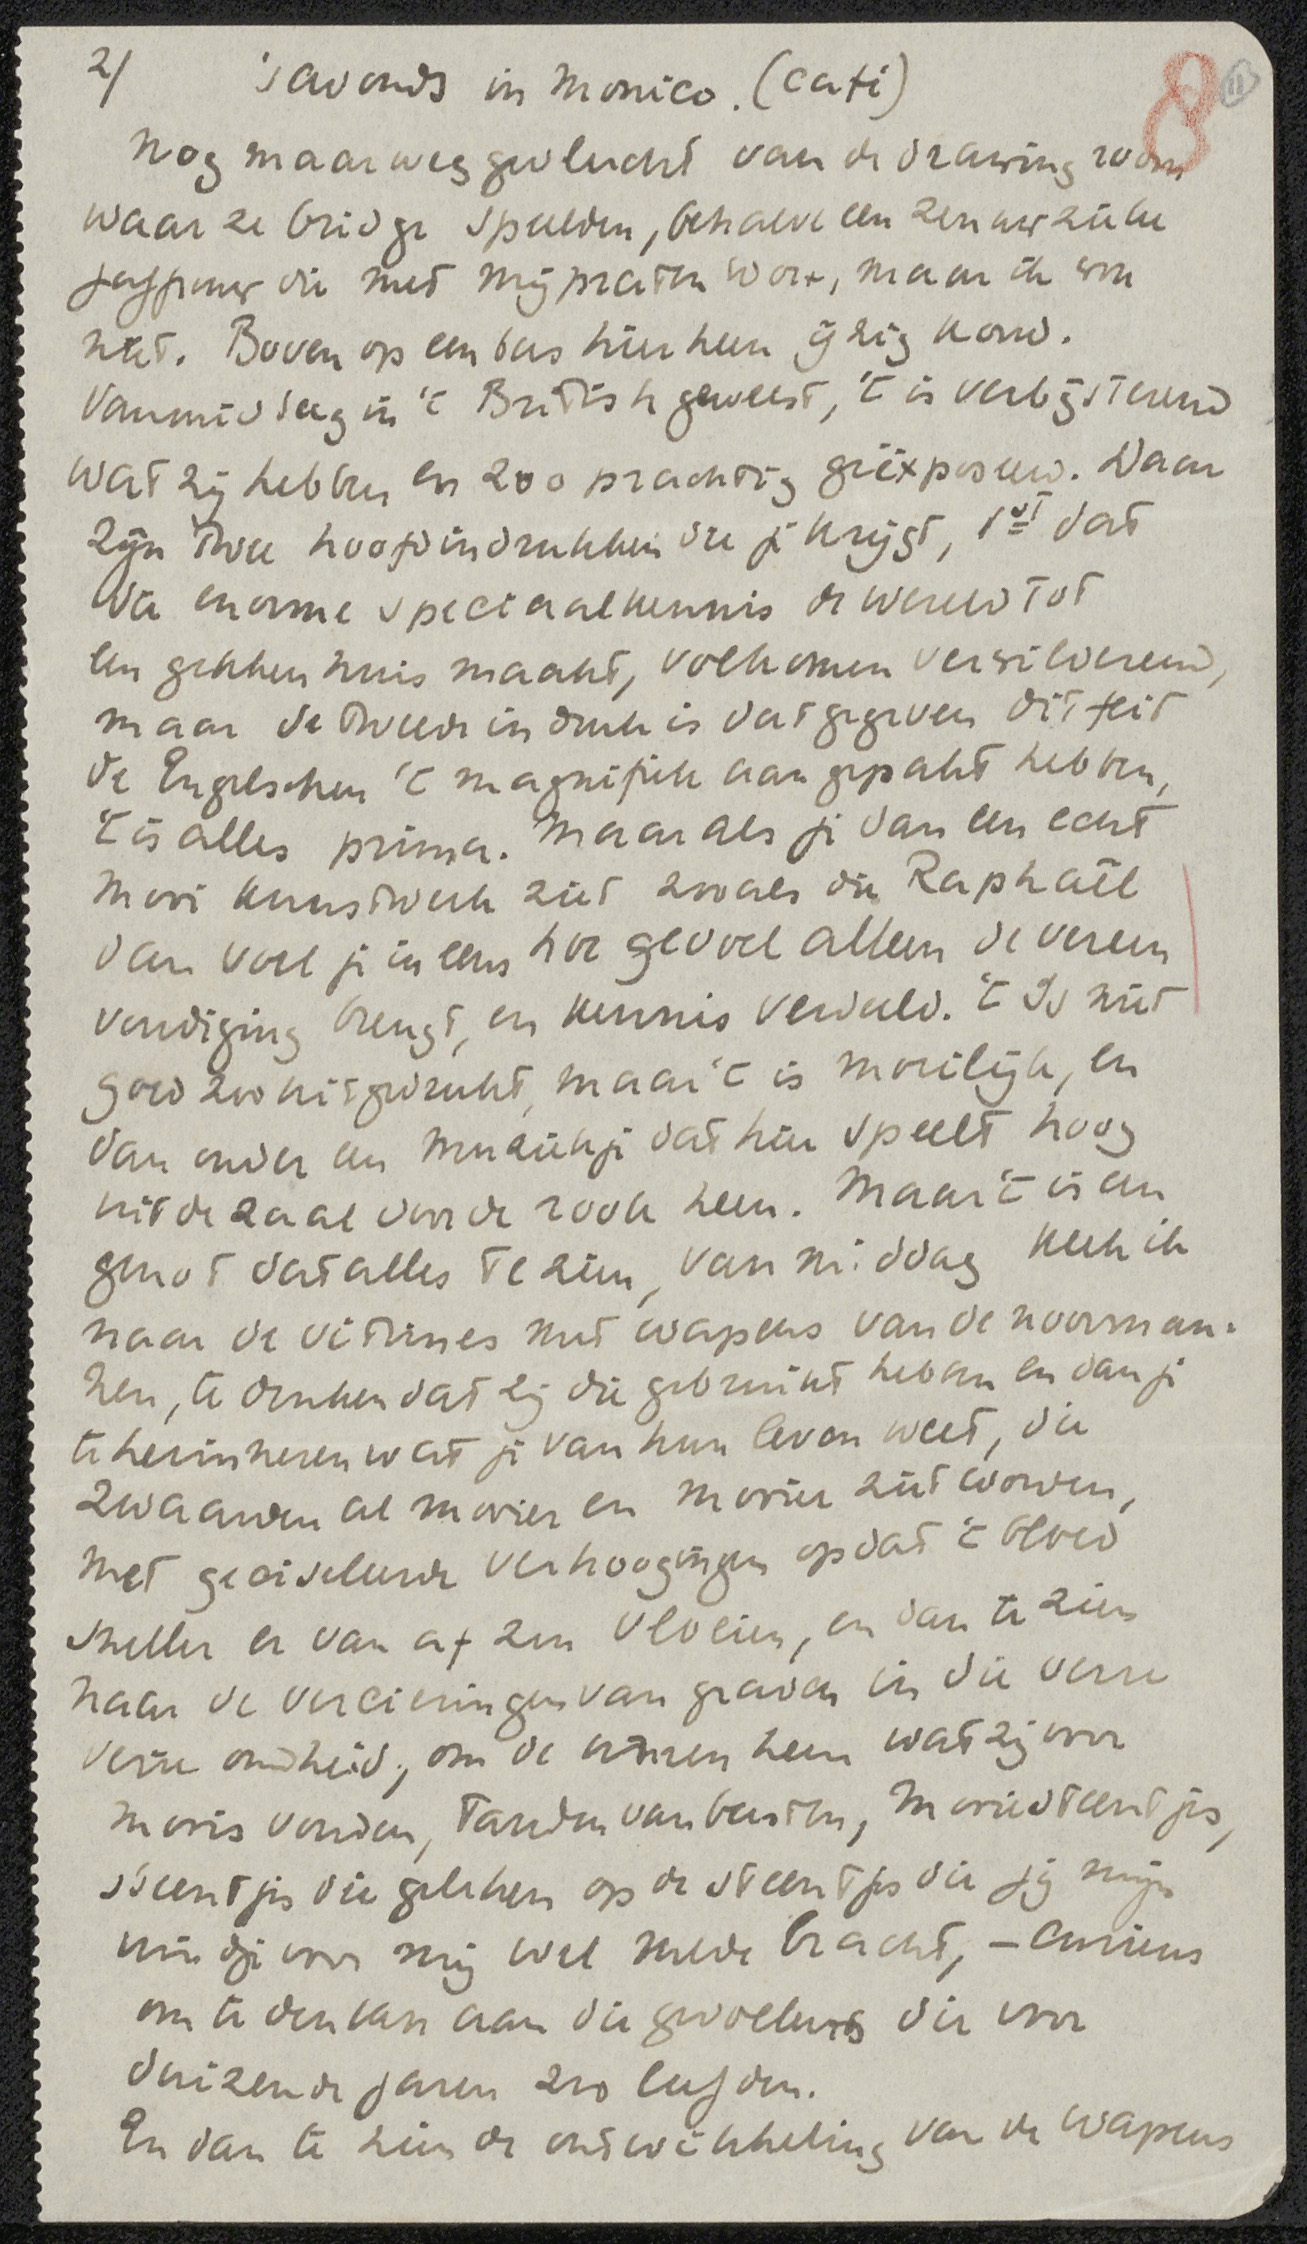 2/ 'savonds in Monico. (café) 8 11
Nog maar weg gevlucht van de drawing room
waar ze bridge speelden, behalve een zenuwzieke
juffrouw die met mij praten wou, maar ik wou
niet. Boven op een bus hierheen ijzig koud.
Vanmiddag in 't British geweest, 't is verbijsterend
wat zij hebben en zoo prachtig geëxposeerd. Daar
zijn twee hoofdindrukken die je krijgt, 1st dat
die enorme speciaalkennis de wereld tot
een gekkenhuis maakt, volkomen verwilderend,
maar de tweede indruk is dat gegeven dit feit
de Engelschen 't magnifiek aangepakt hebben,
't is alles prima. Maar als je dan een echt
mooi kunstwerk ziet zooals die Raphaël
dan voel je ineens hoe gevoel alleen de vereen
voudiging brengt, en kennis verdeeld. 't Is niet
goed zoo uitgedrukt, maar 't is moeilijk, en
dan onder een muziekje dat hier speelt hoog
uit de zaal door de rook heen. Maar 't is een
genot dat alles te zien, van middag keek ik
naar de vitrines met wapens van de noorman-
nen, te denken dat zij die gebruikt hebben en dan je
te herinneren wat je van hun leven weet, die
zwaarden al mooier en mooier ziet worden,
met geciseleerde verhoogingen opdat 't bloed
sneller er van af zou vloeien, en dan te zien
naar de vercieringen van graven in die verre
verre oudheid, om de urnen heen wat zij voor
moois vonden, tanden van beesten, mooie steentjes,
steentjes die geleken op de steentjes die jij mijn
kindje voor mij wel mede bracht, – curieus
om te denken aan die gevoelens die voor
duizende jaren zoo leefden.
En dan te zien de ontwikkeling van de wapens